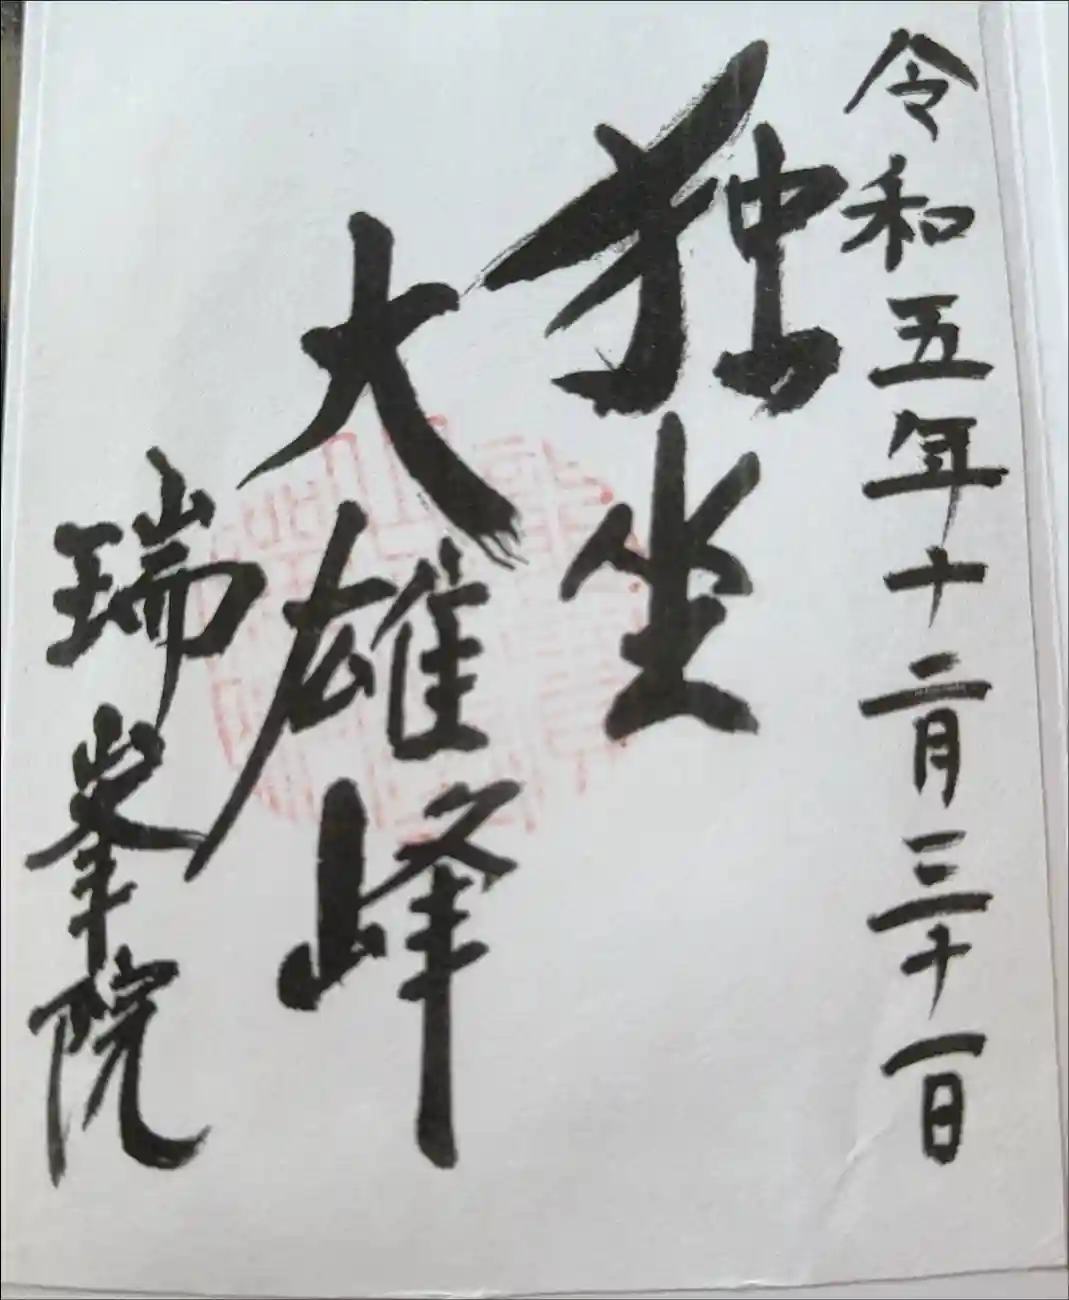 令和五年十二月三十一日
独坐
大雄峰
瑞峯院